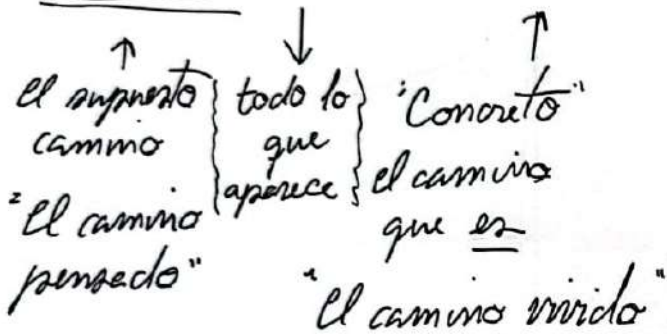 el supuesto
camino
"El camino
pensado"
todo lo
que
aparece
"Concreto"
el camino
que es
"El camino vivido"